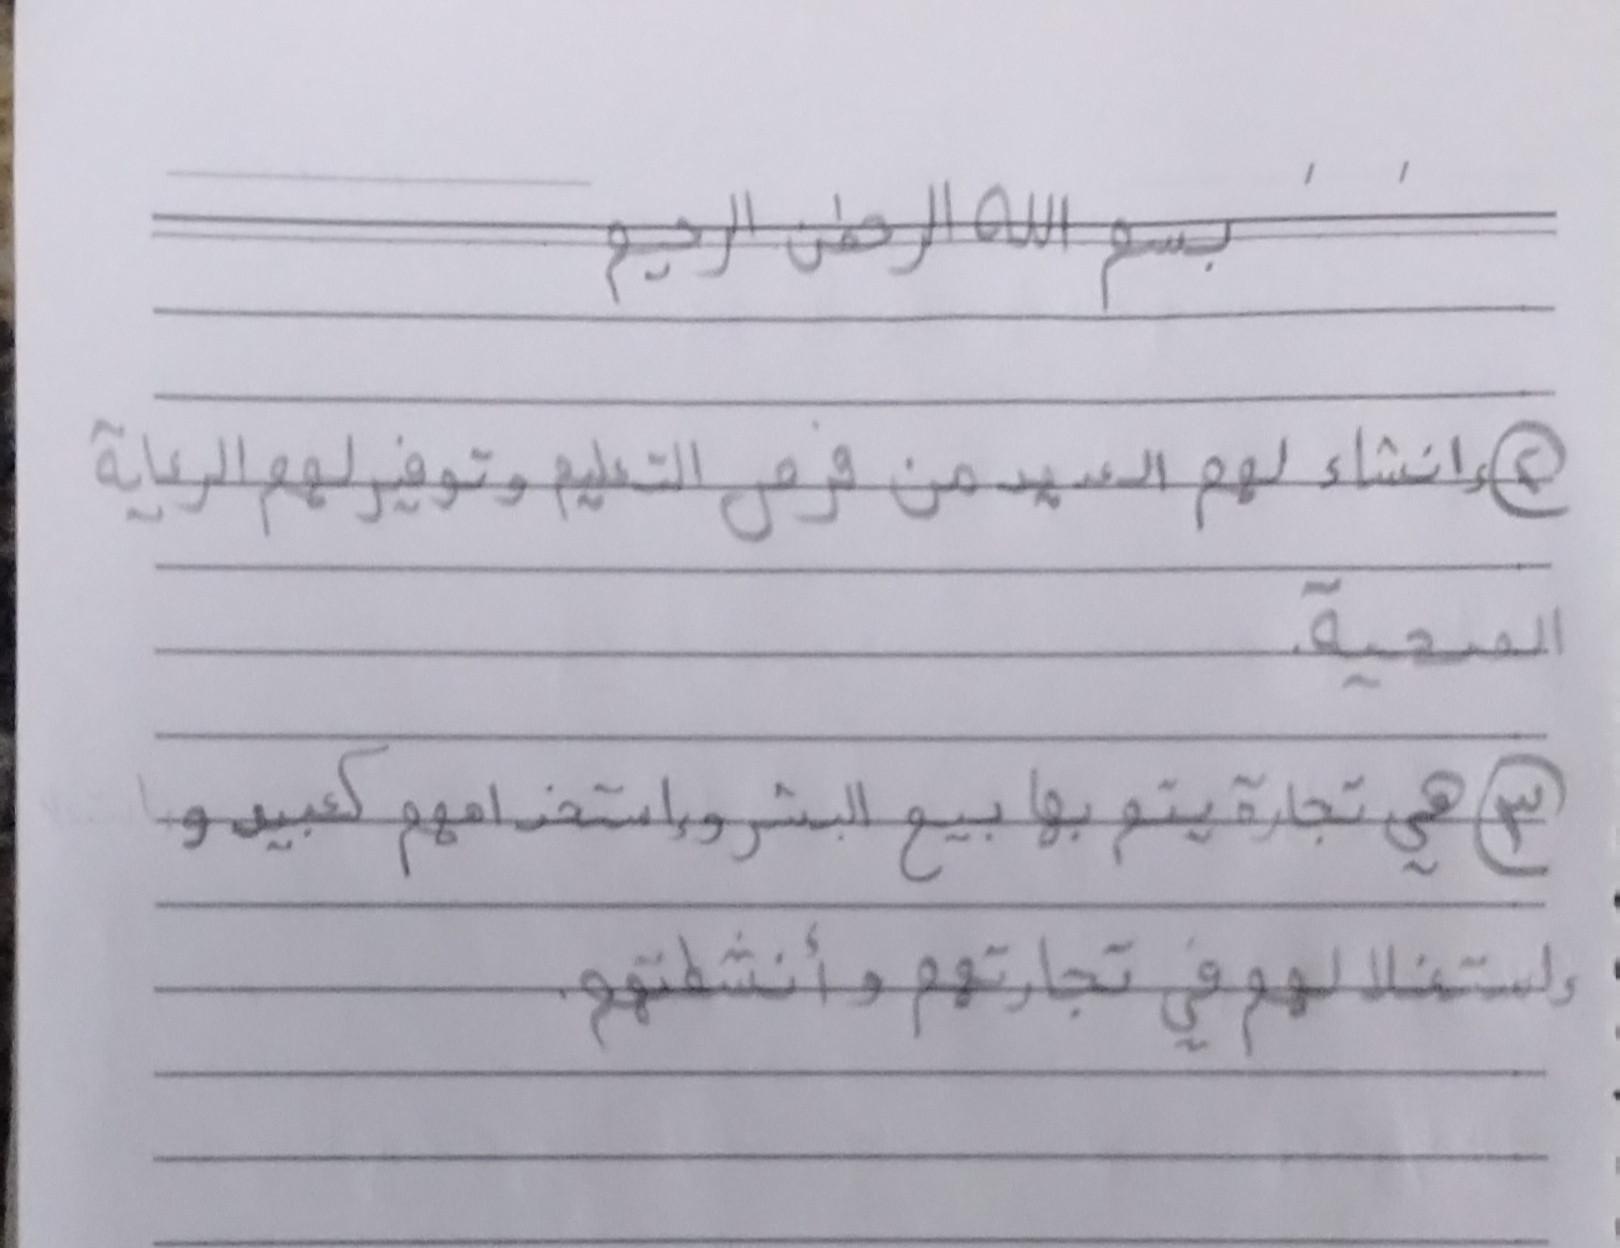 بسم الله الرحمٰن الرحيم
٢ إنشاء لهم العديد من فرص التعليم وتوفير لهم الرعاية
الصحية.
٣ هي تجارة يتم بها بيع البشر وإستخدامهم كعبيد و
إستغلالهم في تجارتهم و أنشطتهم.